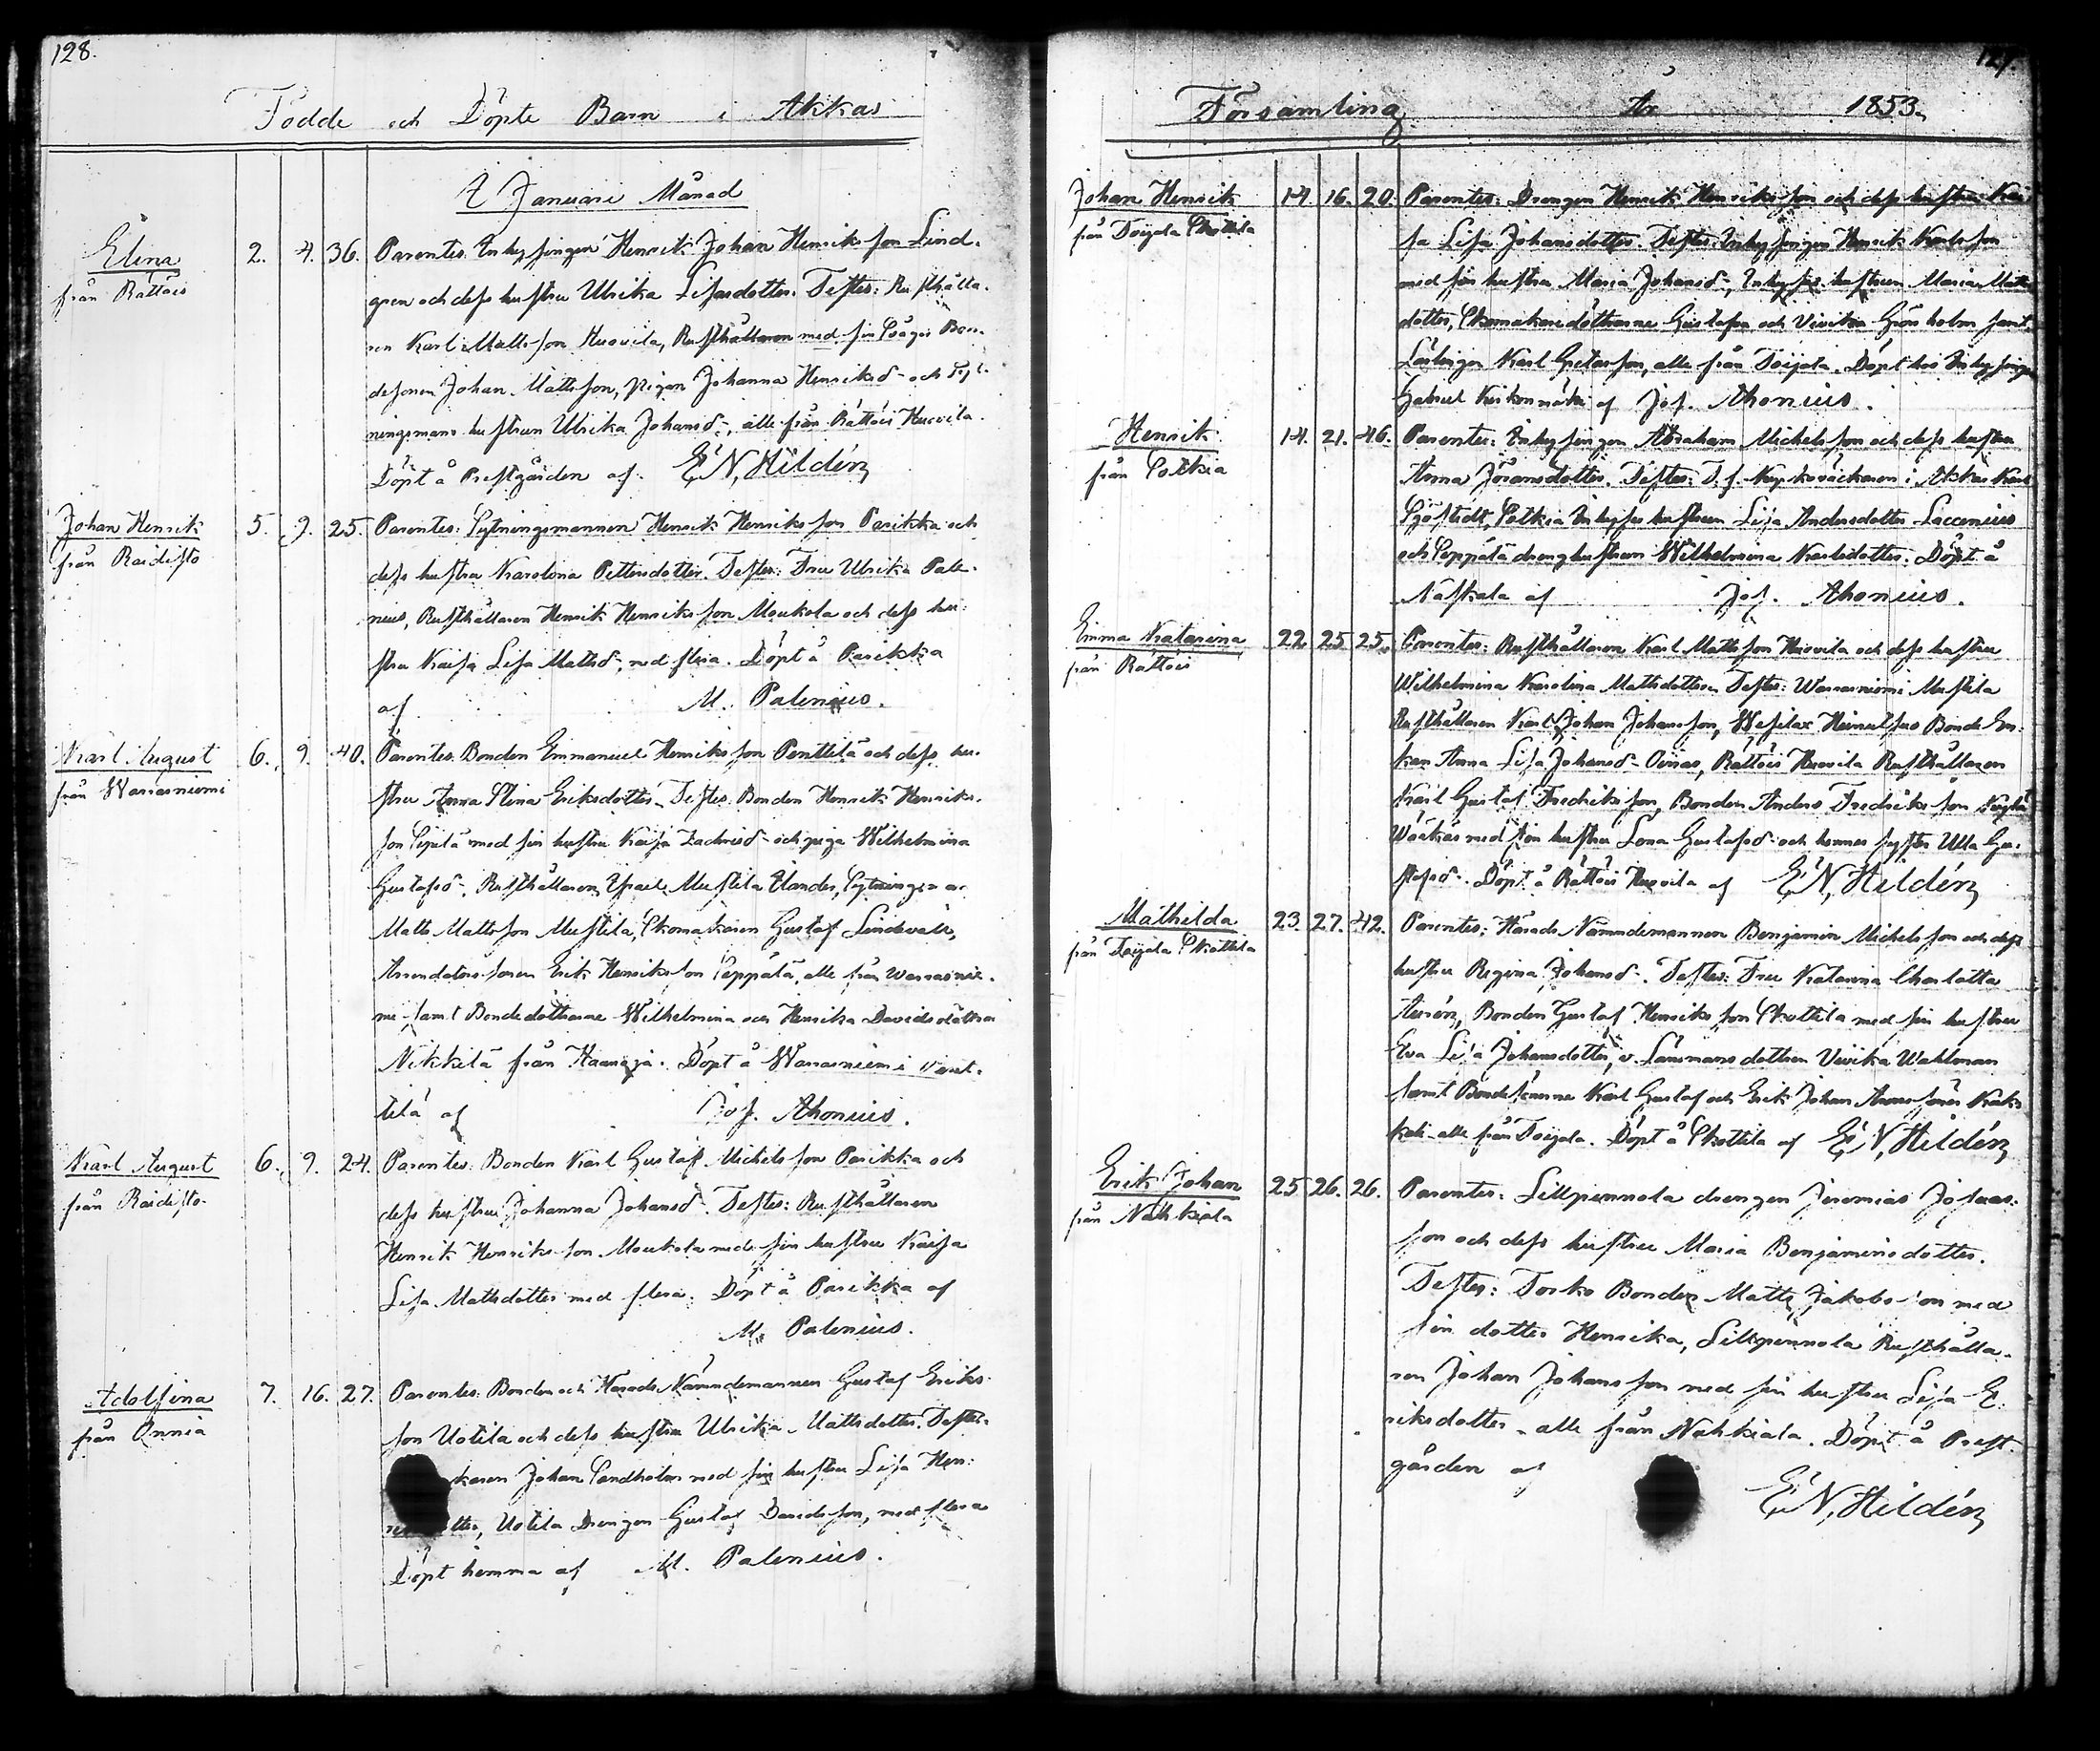 128.
Födde och Döpte Barn i Akkas
I Januari Månad
Elina
från Rättöis
2. 4. 36. Parentes: Inhysingen Henrik Johan Henriksson Lind-
gren och dess hustru Ulrika Lisasdotter. Testes: Rusthålla-
ren Karl Mattsson Huovila, Rusthållaren med sin Bon-
desonen Johan Mattsson, pigan Johanna Henriksd. och
ningsmans hustrun Ulrika Johansd., alle från Rättöis Huovila.
Döpt å Prestgården af E N, Hildén
Johan Henrik
från Raidisto
5. 9. 25. Parentes: Sytningsmannen Henrik Henriksson Parikka och
dess hustru Karolina Pettersdotter. Testes: Fru Ulrika Pale-
nius, Rusthållaren Henrik Henriksson Moukola och dess hu-
stru Kaisa Lisa Mattsd., med flera. Döpt å Parikka
af M. Palenius.
Karl August
från Warrasniemi
6. 9. 40. Parentes: Bonden Emmanuel Henriksson Penttilä och dess hu-
stru Anna Stina Eriksdotter. Testes: Bonden Henrik Henriks-
son med sin hustru Kaisa Zachrisd. och piga Wilhelmina
Gustafsd., Rusthållaren Mustila
Matts Mattsson Mustila, Skomakaren Gustaf Lindevall,
Arrendatorssonen Erik Henriksson Seppälä, alle från Warrasnie-
mi samt Bondedöttrarne Wilhelmina och Henrika Davidsdöttrar
Nikkilä från Haanoja. Döpt å Warrasniemi Pent-
tilä af Jos. Ahonius.
Karl August
från Raidisto
6. 9. 24. Parentes: Bonden Karl Gustaf Michelsson Parikka och
dess hustru Johanna Johansd. Testes: Rusthållaren
Henrik Henriksson Moukola med sin hustru Kaisa
Lisa Mattsdotter med flera. Döpt å Parikka af
M. Palenius.
Adolfina
från Onnia
7. 16. 27. Parentes: Bonden och Härads Nämndemannen Gustaf Eriks-
son Uotila och dess hustru Ulrika Mattsdotter. Testes:
karen Johan Sandholm med sin hustru Lisa Hen-
Uotila Drengen Gustaf Davidsson, med flera
Döpt hemma af M. Palenius.
129.
Församling År 1853.
Johan Henrik
från Toijala Skottila
14. 16. 20. Parentes: Drengen Henrik Henriksson och dess hustru Kai-
sa Lisa Johansdotter. Testes: Inhysingen Henrik Karlsson
med sin hustru Maria Johansd., Inhyses hustrun Maria Matts-
dotter, Skomakaredöttrarne Gustafva och Vivika Grönholm samt
Lärlingen Karl Gustafsson, alle från Toijala. Döpt hos Inhysingen
Gabriel af Jos. Ahonius.
Henrik
från Sotkia
14. 21. 46. Parentes: Inhysingen Abraham Michelsson och dess hustru
Anna Jöransdotter. Testes: T. f. i Akkas Karl
Sjöstedt, Sotkia Inhyses hustrun Lisa Andersdotter Laccenius
och Seppälä dreng hustrun Wilhelmina Karlsdotter. Döpt å
Naskala af Jos. Ahonius.
Emma Katarina
från Rättöis
22. 25. 25. Parentes: Rusthållaren Karl Mattsson Huovila och dess hustru
Wilhelmina Karolina Mattsdotter. Testes: Warrasniemi Mustila
Rusthållaren Karl Johan Johansson, Wesilax Bonde En-
kan Anna Lisa Johansd. Rättöis Huovila Rusthållaren
Karl Gustaf Fredriksson, Bonden Anders Fredriksson
med sin hustru Lona Gustafsd. och hennes syster Ulla Gu-
stafsd. Döpt å Rättöis Huovila af E N, Hildén
Mathilda
från Toijala Skottila
23. 27. 42. Parentes: Härads Nämndemannen Benjamin Michelsson och dess
hustru Regina Johansd. Testes: Fru Katarina Charlotta
Aurén, Bonden Gustaf Henriksson Skottila med sin hustru
Eva Lisa Johansdotter, v. Länsmansdottren Vivika Wahlman
samt Bondesönerne Karl Gustaf och Erik Johan
alle från Toijala. Döpt å Skottila af E N, Hildén
Erik Johan
från Nahkiala
25. 26. 26. Parentes: Lillpennola drengen Jeremias Josuas-
son och dess hustru Maria Benjaminsdotter.
Testes: Torko Bonden Matts Jakobsson med
sin dotter Henrika, Lillpennola Rusthålla-
ren Johan Johansson med sin hustru Lisa E-
riksdotter, alle från Nahkiala. Döpt å Prest-
gården af E N, Hildén